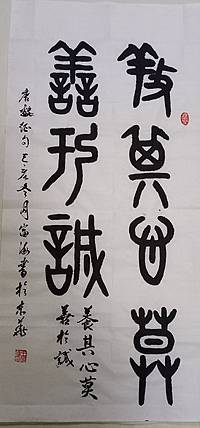 養其心莫
善於誠
養其心莫
善於誠
唐魏征句 己亥冬月 海書於